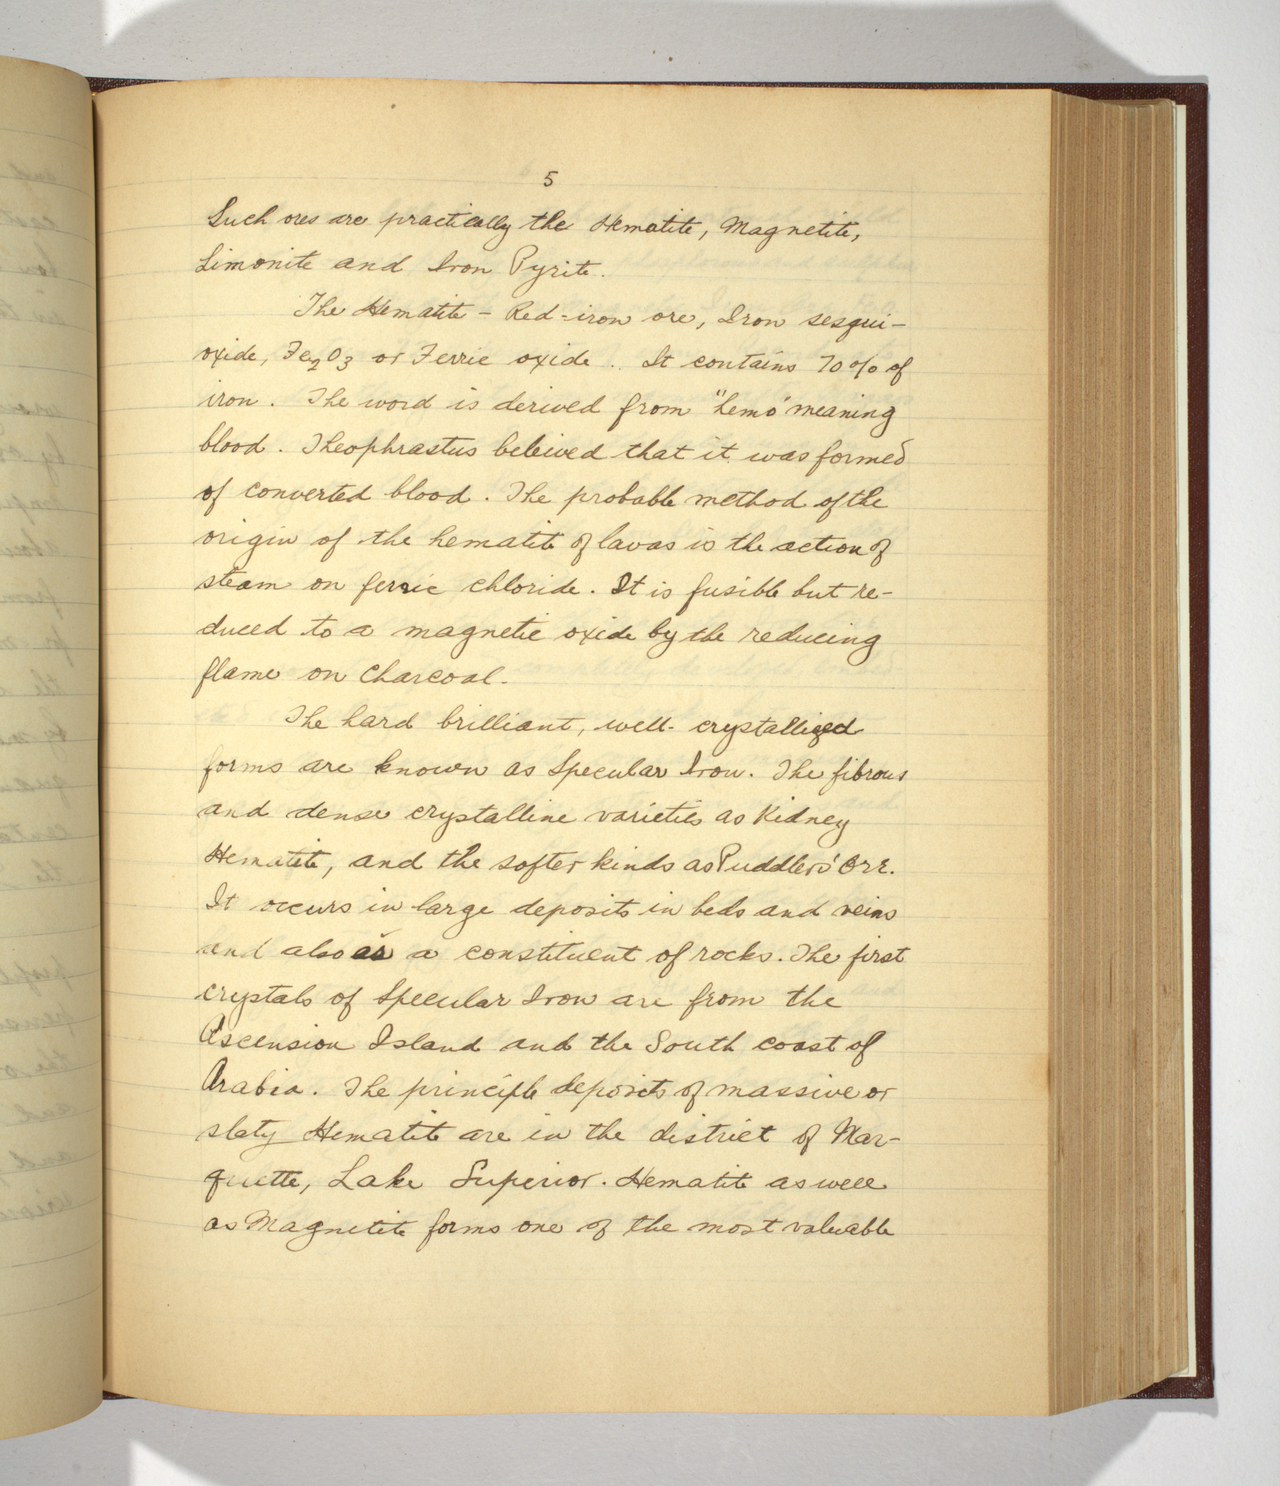 5
Such ores are practically the Hematite, Magnetite,
Limonite and Iron Pyrite.
The Hematite - Red-iron ore, Iron sesqui-
oxide, Fe2O3 or Ferric oxide. It contains 70% of
iron. The word is derived from "hemo" meaning
blood. Theophrastus beleived that it was formed
of converted blood. The probable method of the
origin of the hematite of lavas is the action of
steam on ferric chloride. It is fusible but re-
duced to a magnetic oxide by the reducing
flame on charcoal.
The hard brilliant, well-crystallized
forms are known as Specular Iron. The fibrous
and dense crystalline varieties as Kidney
Hematite, and the softer kinds as Puddlers' Ore.
It occurs in large deposits in beds and veins
and also as a constituent of rocks. The first
crystals of Specular Iron are from the
Ascension Island and the South coast of
Arabia. The principle deposits of massive or
slaty Hematite are in the district of Mar-
quette, Lake Superior. Hematite as well
as Magnetite forms one of the most valuable